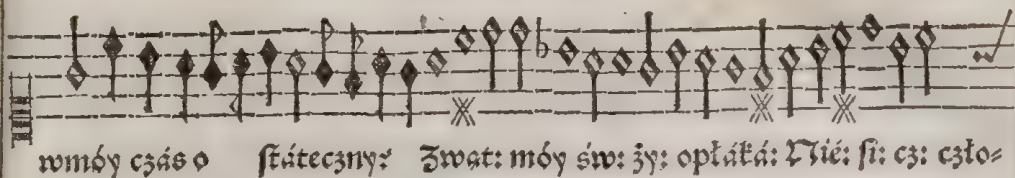 wmóy czás o státeczny: Zwąt: móy św: ży: opłáká: Nié: śi: cz: czło=